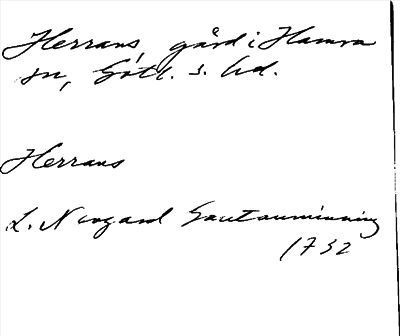 Herrans, gård i Hamra
sn, Gotl. s. hd.
Herrans
L. Neogard Gautauminning
1732